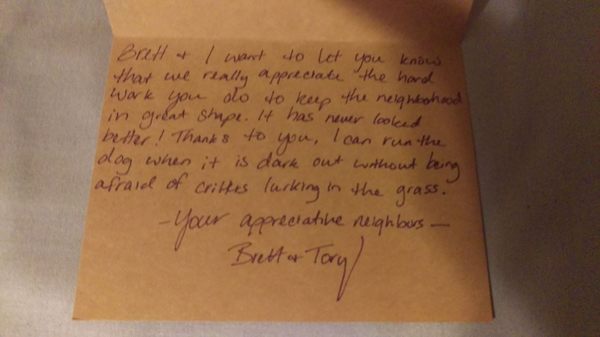 Brett + I want to let you know
that we really appreciate the hard
work you do to keep the neighborhood
in great shape. It has never looked
better! Thanks to you, I can run the
dog when it is dark out without being
afraid of critters lurking in the grass.
- Your appreciative neighbors -
Brett + Tory